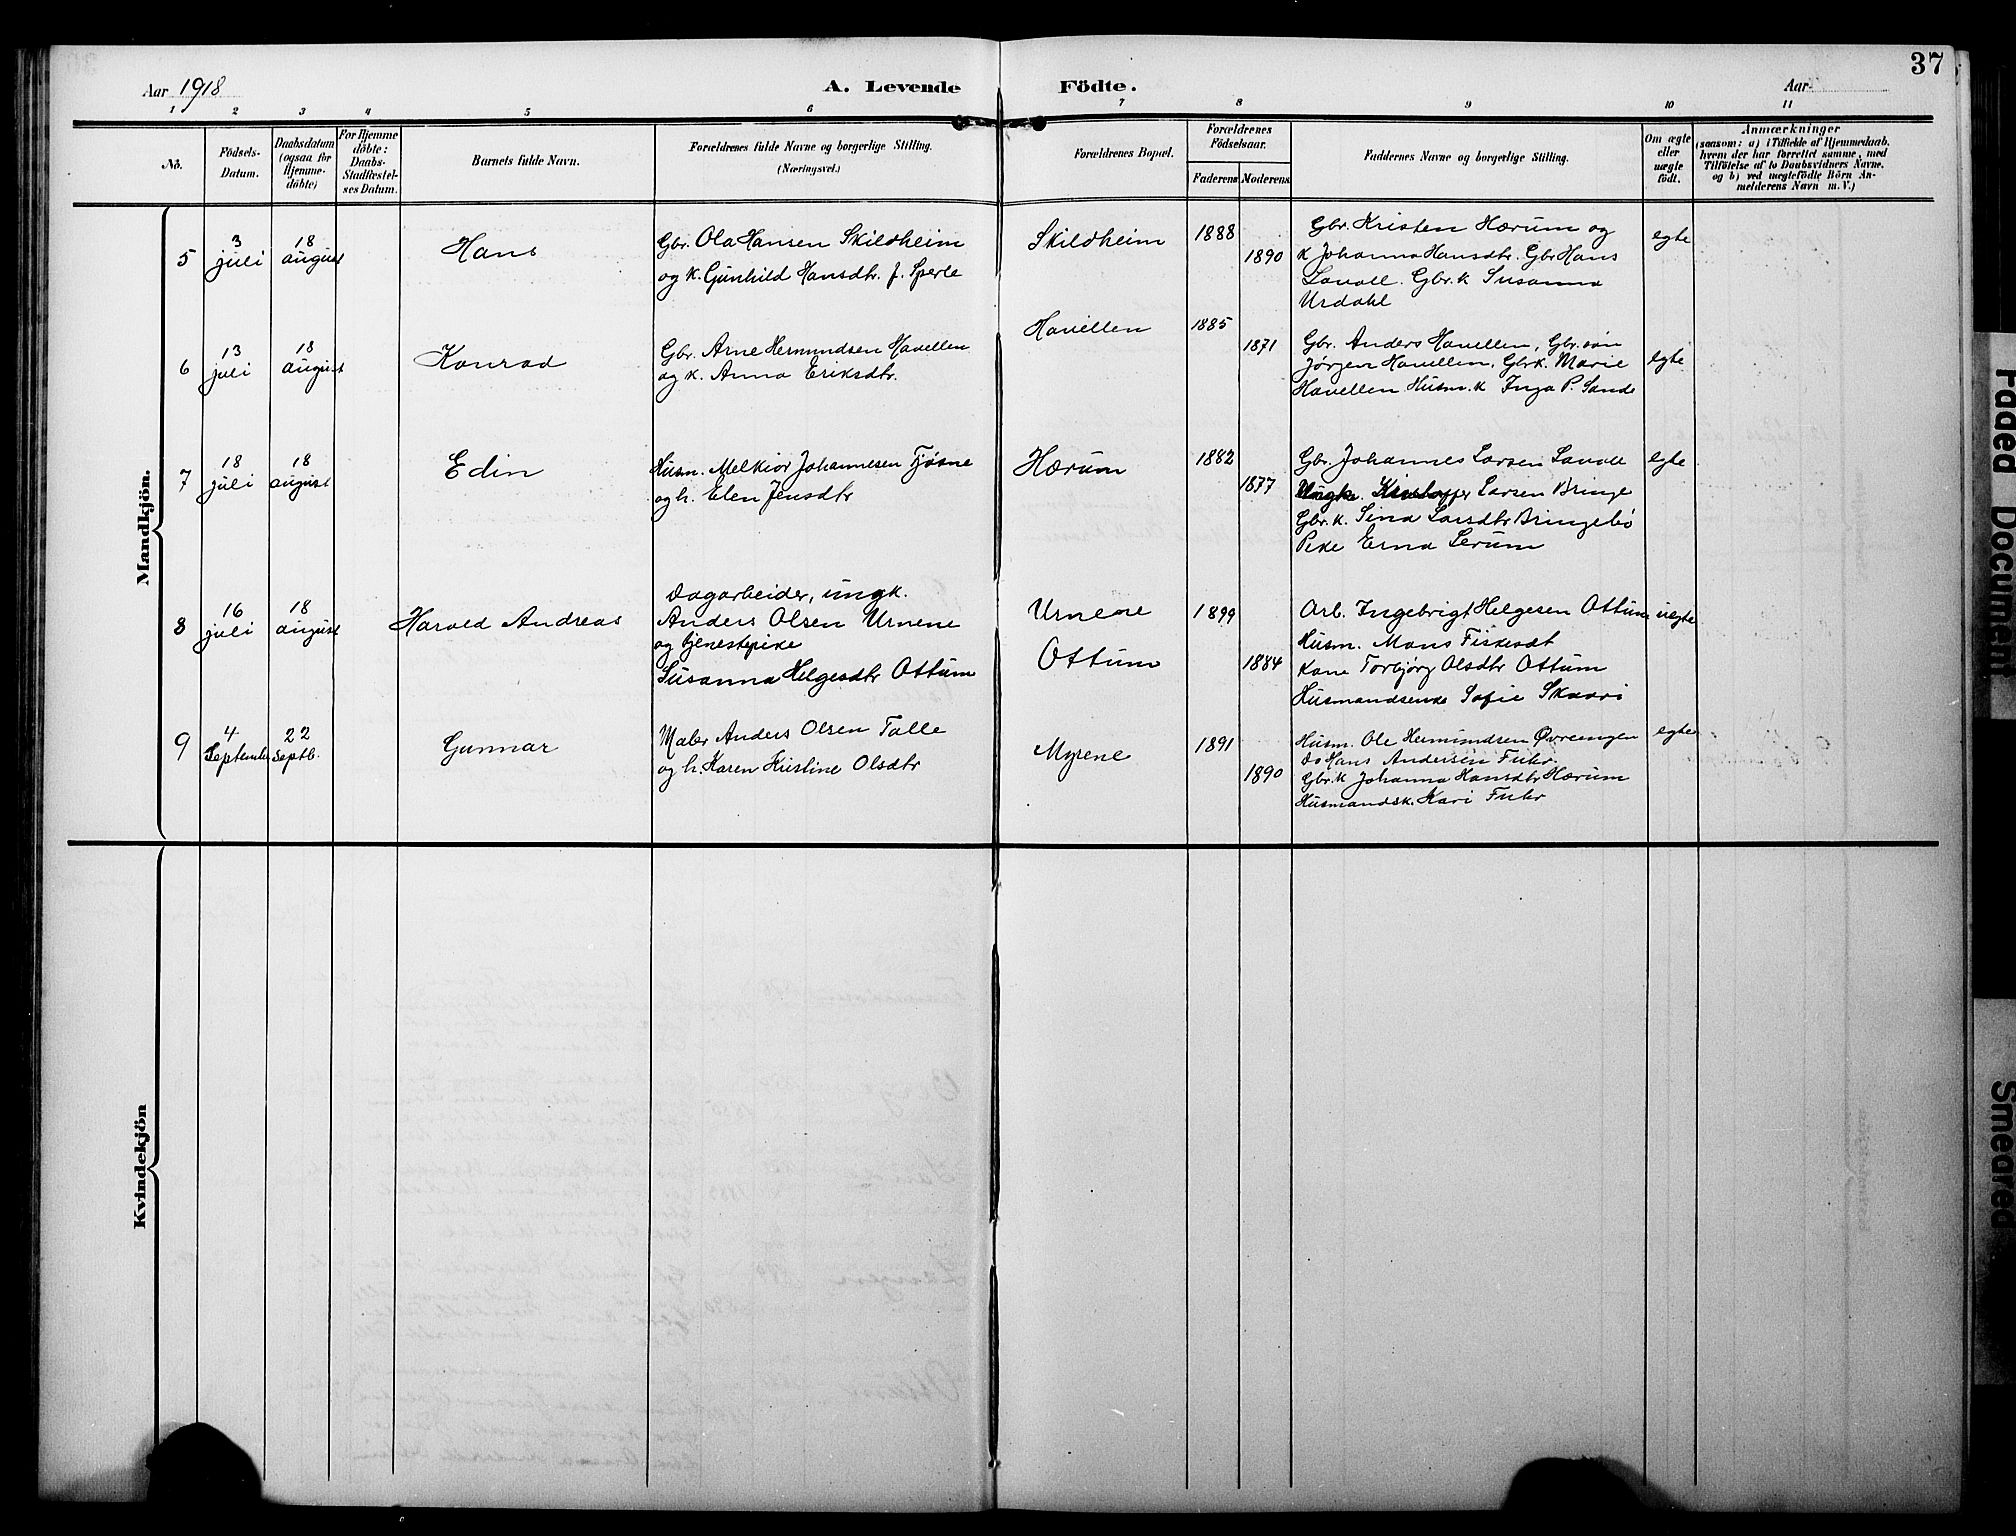 37
Aar 1918
A. Levende Födte.
Aar
1 2 3 4 5 6 7 8 9 10 11
No.
Födsels-
Datum.
Daabsdatum
(ogsaa for
Hjemme-
döbte)
For Hjemme
döbte:
Daabs-
Stadfæstel-
ses Datum.
Barnets fulde Navn.
Forældrenes fulde Navne og borgerlige Stilling.
(Næringsvei.)
Forældrenes Bopæl.
Forældrenes
Födselsaar.
Faderens Moderens
Faddernes Navne og borgerlige Stilling.
Om ægte
eller
uægte
födt.
Anmærkninger
(saasom: a) i Tilfælde af Hjemmedaab,
hvem der har forrettet samme, med
Tilföielse af to Daabsvidners Navne.
og b) ved uægtefödte Börn An-
melderens Navn m. V.)
Mandkjön.
5
3
juli
18
august
Hans
Gbr. Ola Hansen Skildheim
og k. Gunhild Hansdtr. f. Sperle
Skildheim
1888
1890
Gbr. Kristen Hærum og
k Johanna Hansdtr. Gbr Hans
Lavoll. Gbr. k Susanna
Urdahl
egte
6
13
juli
18
august
Konrad
Gbr. Arne Hermundsen Havellen
og k. Anna Eriksdtr.
Havellen
1885
1871
Gbr. Anders Havellen, Gbr. søn
Jørgen Havellen, Gbrk. Marie
Havellen Husm. k Inga P. Sande
egte
7
18
juli
18
august
Edin
Husm. Melkior Johannesen Fjøsne
og h. Elen Jensdtr
Hærum
1882
1877
Gbr. Johannes Larsen Lavoll
Ungk. Kristoffer Larsen Bringe
Gbr. k. Sina Larsdtr Bringebø
Pike Erna Lerum
egte
8
16
juli
18
august
Harald Andreas
Dagarbeider, ungk.
Anders Olsen Urnene
og tjenestepike
Susanna Helgesdtr Ottum
Urnene
Ottum
1899
1884
Arb. Ingebrigt Helgesen Ottum
Husm. Mons Fiskesdt
Kone Torbjørg Olsdtr Ottum
Husmandsenke Sofie Skaari
uegte
9
4
September
22
Septb.
Gunnar
Maler Anders Olsen Talle
og h. Karen Kristine Olsdtr
Myrene
1891
1890
Husm. Ole Hermundsen Øvreengen
Do Hans Andersen Fuhr.
Gbr. k Johanna Hansdtr Hærum
Husmandsk. Kari Fuhr
egte
Kvindekjön
Faded Document
Smeared